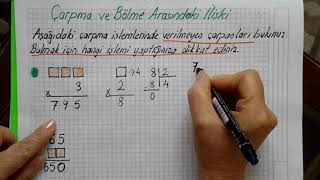 Çarpma ve Bölme Arasındaki İlişki
Aşağıdaki çarpma işlemlerinde verilmeyen çarpanları bulunuz.
Bulmak için hangi işlemi yaptığınıza dikkat ediniz.
□□□ □→4 8 2 7
x 3 x 2 8 4
795 8 0
65
x □□
650